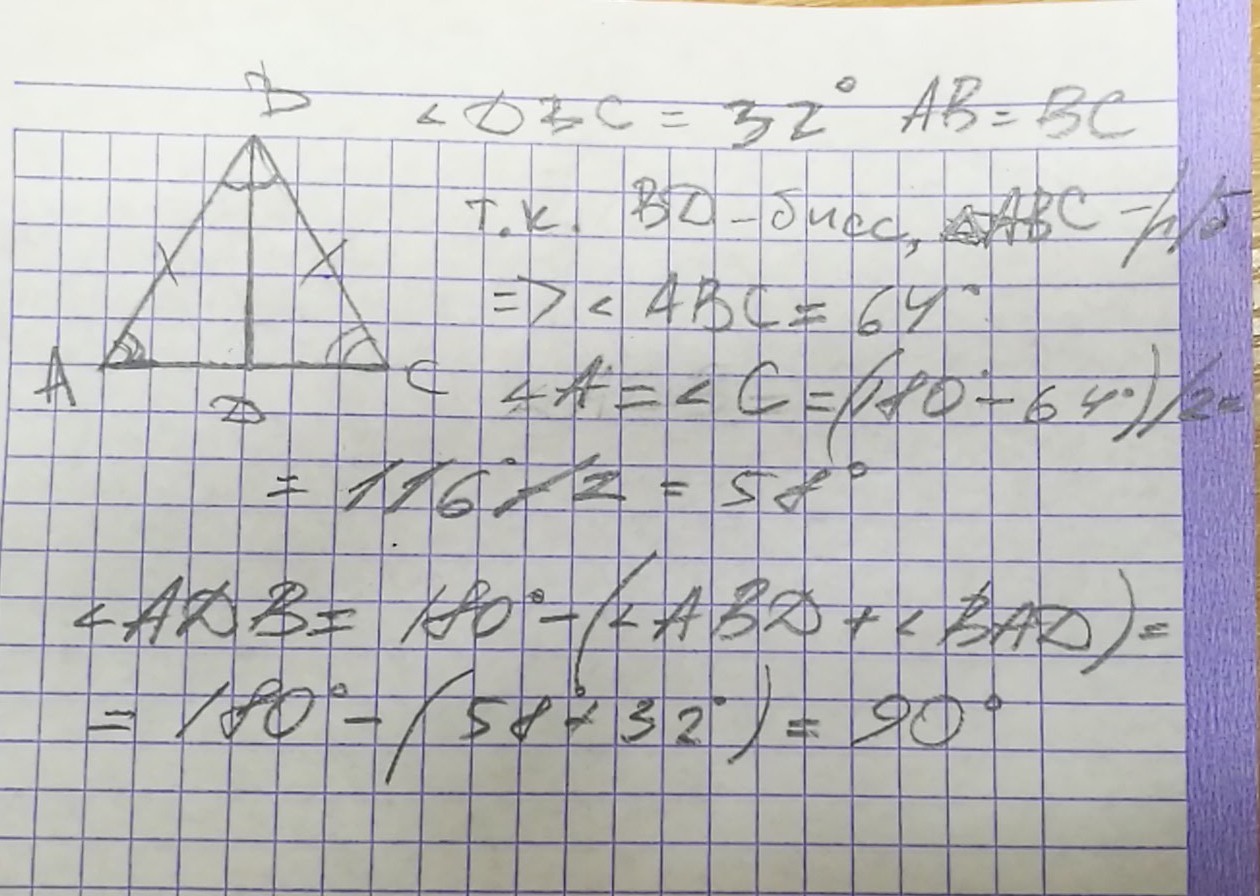 B
<DBC = 32° AB = BC
т.к. BD - бисс, △ABC - р/б
=> < ABC = 64°
A
D
C
<A = <C = (180° - 64°)/2 =
= 116°/2 = 58°
<ADB = 180° - (<ABD + <BAD) =
= 180° - (58° + 32°) = 90°